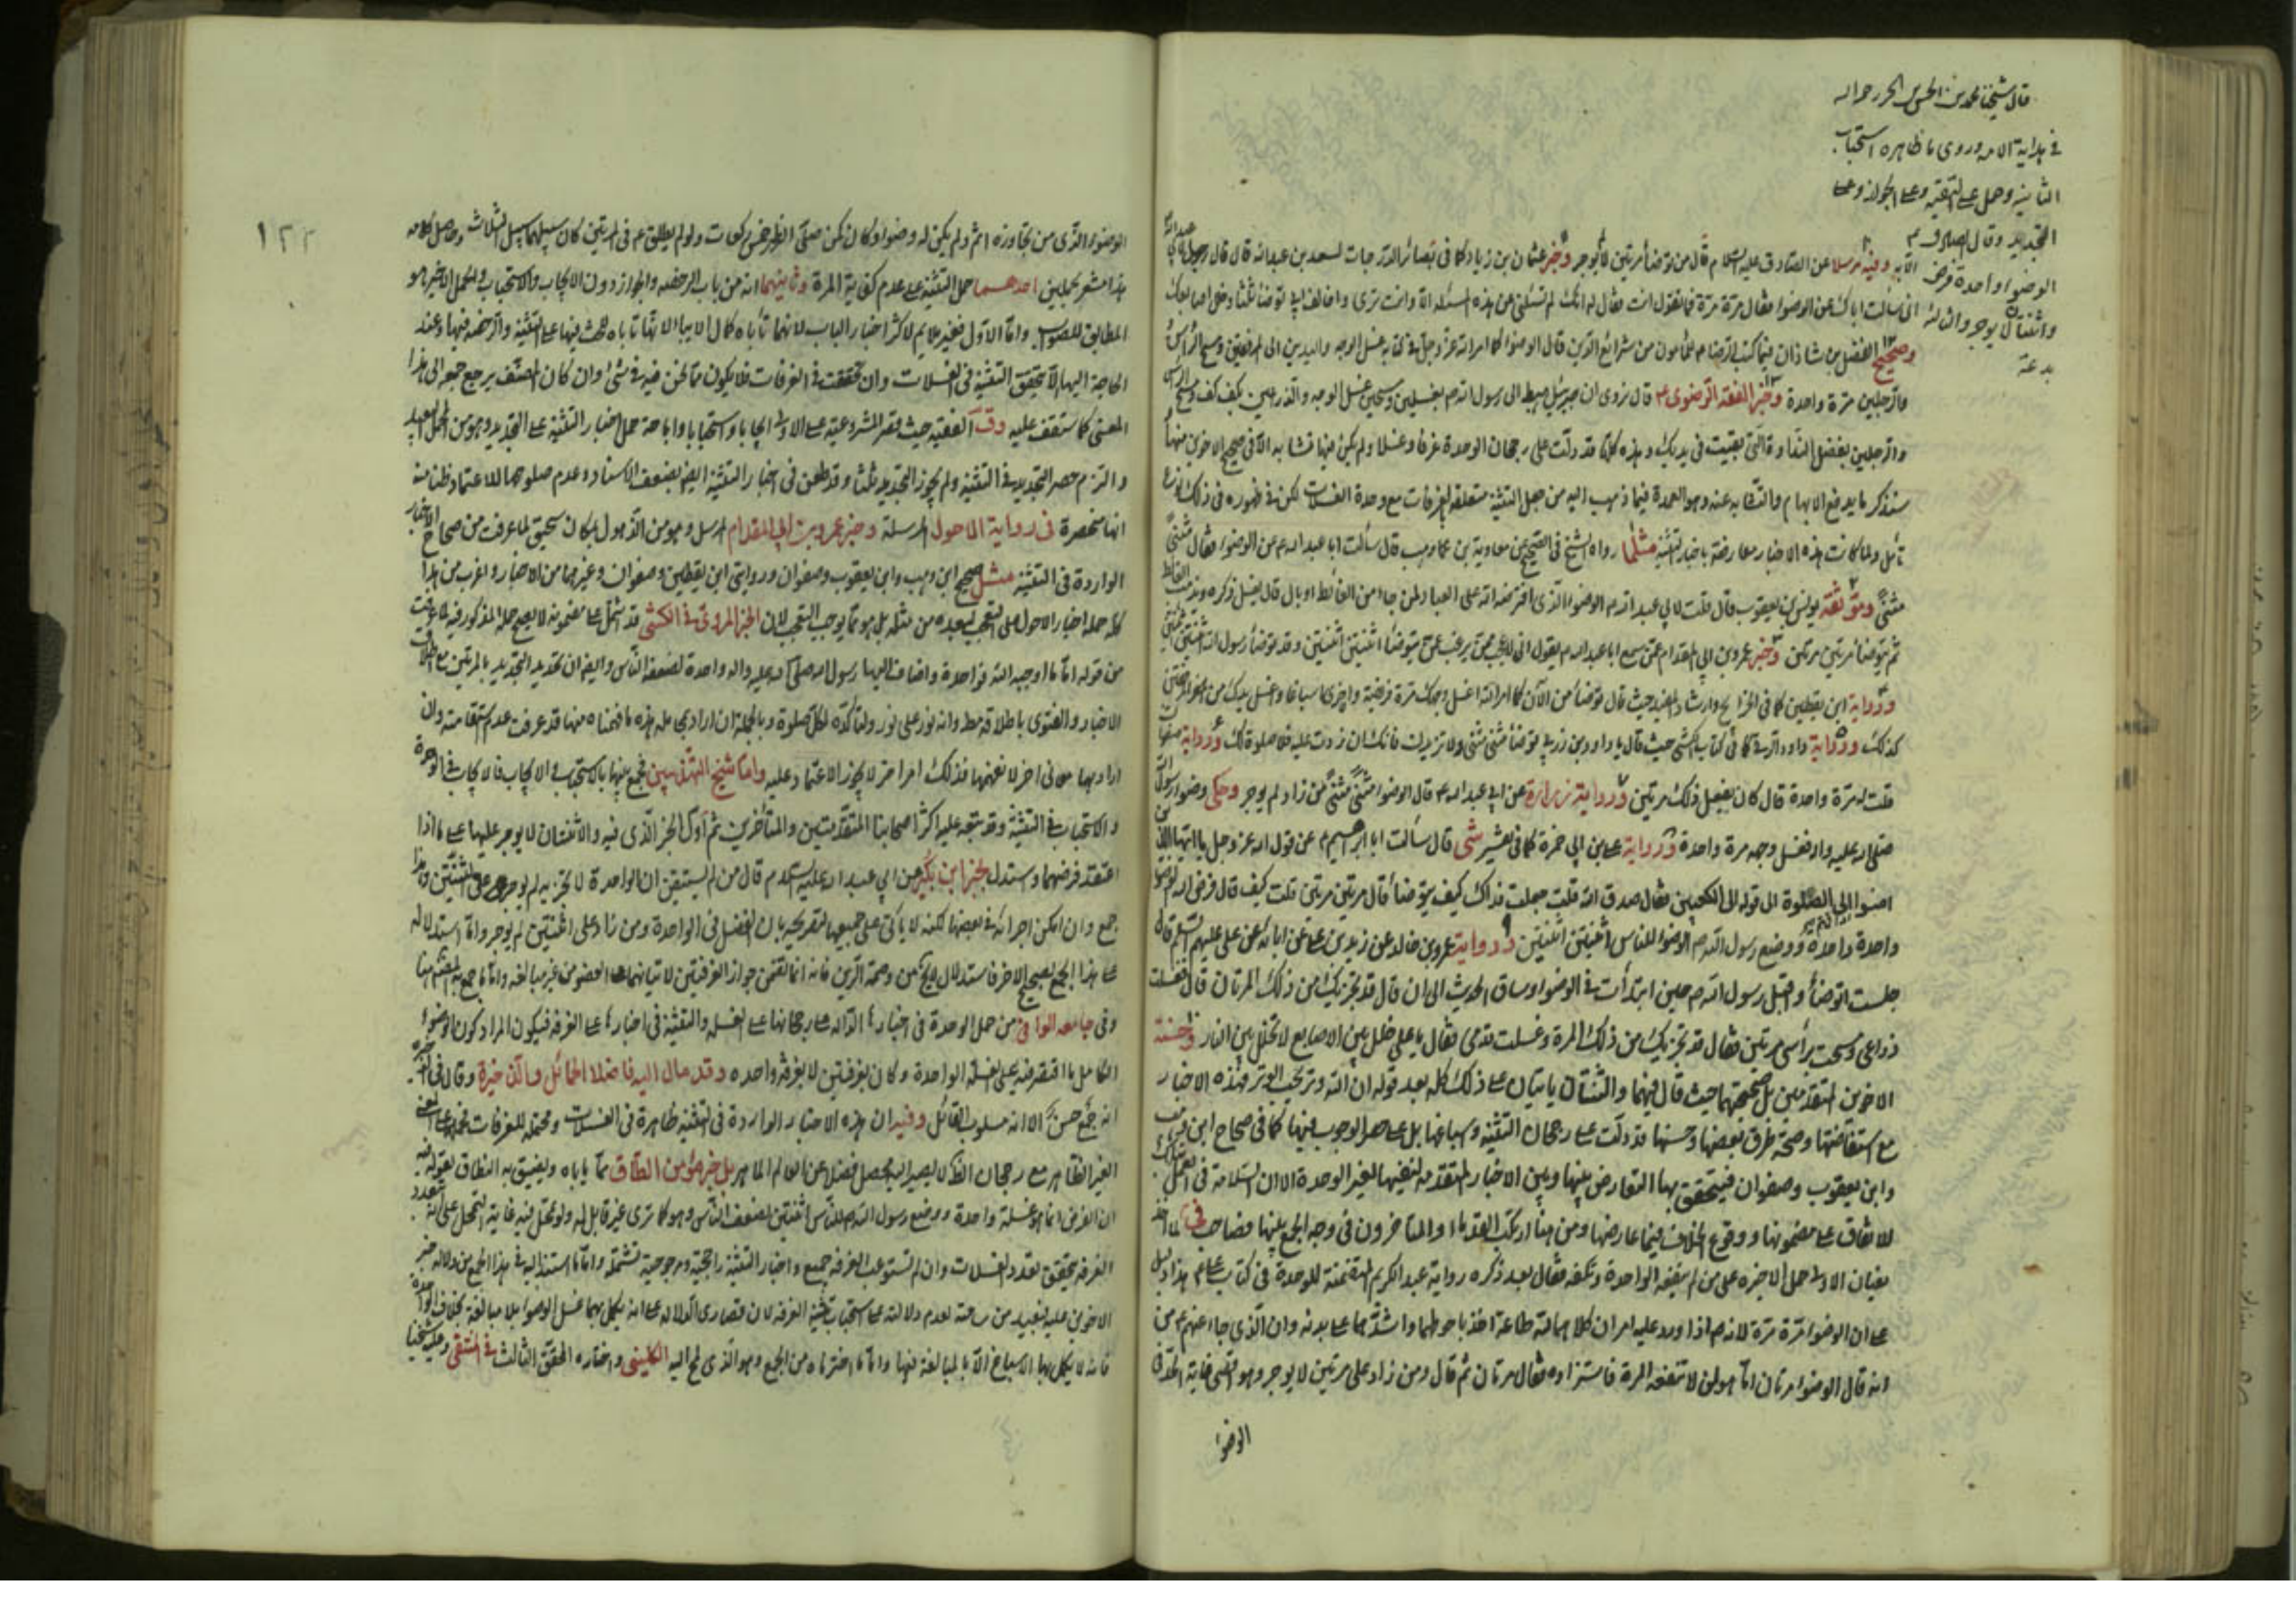 قال شيخنا محمد بن الحسن الحر رحمه الله
في بداية الامه وروى ما ظاهره استحباب
الثانية وحمل على التقية وعلى الجواز وعلى
التجديد وقال الصادق م
الوضوء واحدة فرض
واثنتان لا يوجر والثالثة
بدعة
وفيه مرسلا عن الصادق عليه السلام قال من توضأ مرتين لم يوجر وخبر عثمان بن زياد كما في بصائر الدرجات لسعد بن عبدالله قال قال رجل
اني سألت اباك عن الوضوء فقال مرة مرة فما تقول انت فقال له انك لم تسئلني عن هذه المسئلة الا وانت ترى واخالف ابي توضأ ثلثا وخلل اصابعك
وصحيح الفضل بن شاذان فيما كتبه الرضا م للمأمون من شرائع الدين قال الوضوء كما امر الله عز وجل في كتابه غسل الوجه واليدين الى المرفقين ومسح الرأس
والرجلين مرة واحدة وخبر الفقه الرضوي م قال نروي ان جبرئيل هبط الى رسول الله م بغسلين ومسحين غسل الوجه والذراعين بكف كف ومسح الرأس
والرجلين بفضل النداوة التي بقيت في يديك وهذه كلها قد دلت على رجحان الوحدة غرفا وغسلا ولم يكن فيها تشابه الا في صحيح الاخوين
سنذكر ما يدفع الابهام والتشابه عنه وهو العمدة فيما ذهب اليه من جعل التثنية متعلقة بالغرفات مع وحدة الغسلات لكن في ظهوره في ذلك نوع
تأمل ولما كانت هذه الاخبار معارضة باخبار التثنية مثل ما رواه الشيخ في الصحيح عن معاوية بن وهب قال سألت ابا عبدالله م عن الوضوء فقال مثنى
مثنى وموثقة يونس بن يعقوب قال قلت لابي عبدالله م الوضوء الذي افترضه الله على العباد لمن جاء من الغائط او بال قال يغسل ذكره ويذهب الغائط
ثم يتوضأ مرتين مرتين وخبر عمرو بن ابي المقدام عمن سمع ابا عبدالله م يقول اني لاعجب ممن يرغب عن ان يتوضأ اثنتين اثنتين وقد توضأ رسول الله اثنتين اثنتين
ورواية ابن يقطين كما في الخرايج وارشاد المفيد حيث قال توضأ من الآن كما امر الله اغسل وجهك مرة فريضة واخرى اسباغا واغسل يديك من المرفقين
كذلك ورواية داود الرقي كما في كتاب الكشي حيث قال يا داود بن زربي توضأ مثنى مثنى ولا تزيدن فانك ان زدت عليه فلا صلوة لك ورواية صفوان
قلت له مرة واحدة قال كان يفعل ذلك مرتين ورواية زرارة عن ابي عبدالله م قال الوضوء مثنى مثنى من زاد لم يوجر وحكى وضوء رسول
صلى الله عليه واله فغسل وجهه مرة واحدة ورواية علي بن ابي حمزة كما في تفسير شى قال سألت ابا ابراهيم م عن قول الله عز وجل يا ايها الذين
امنوا الى الصلوة الى قوله الى الكعبين فقال صدق الله قلت جعلت فداك كيف يتوضأ قال مرتين مرتين قلت كيف قال فرض الله الوضوء
واحدة واحدة ووضع رسول الله م الوضوء للناس اثنتين اثنتين ورواية عمرو بن خالد عن زيد بن علي عن ابائه عن علي عليهم السلم قال
جلست اتوضأ واقبل رسول الله م حين ابتدأت في الوضوء وساق الحديث الى ان قال قد يجزيك من ذلك المرتان قال فغسلت
ذراعي ومسحت برأسي مرتين فقال قد يجزيك من ذلك المرة وغسلت قدمي فقال يا علي خلل بين الاصابع لا تخلل بين النار وحسنة
الاخوين المتقدمتين بل صحيحتهما حيث قال فيهما والثنتان ياتيان على ذلك كله بعد قوله ان الله وتر يحب الوتر فهذه الاخبار
مع استفاضتها وصحة طرق بعضها وحسنها قد دلت على رجحان التثنية واسباغها بل على حصر الوجوب فيها كما في صحاح ابن وهب
وابن يعقوب وصفوان فيتحقق بها التعارض بينها وبين الاخبار المتقدمة لنفيها لغير الوحدة الا ان السلامة في العمل بتلك
للاتفاق على مضمونها ووقوع الخلاف فيما عارضها ومن هنا ارتكب القدماء والمتأخرون في وجه الجمع بينها فصاحب في
بيان الاول حمل الاخيرة على من لم يقنعه الواحدة وتكفه فقال بعد ذكره رواية عبد الكريم المتضمنة للوحدة في كتاب علي م هذا دليل
على ان الوضوء مرة مرة لانه م اذا ورد عليه امران كلاهما لله طاعة اخذ باحوطهما واشدهما على بدنه وان الذي جاء عنهم م من
انه قال الوضوء مرتان انما هو لمن لا تقنعه المرة فاستزاده فقال مرتان ثم قال ومن زاد على مرتين لا يوجر وهو اقصى غاية الحد في
الوضوء
١٢٢
الوضوء الذي من تجاوزه اثم ولم يكن له وضوء وكان كمن صلى الظهر خمس ركعات ولو لم يطلق م في المرتين كان سبيلهما سبيل الثلاث وحاصل كلامه
هذا مشعر بحملين احدهما حمل التثنية على عدم كفاية المرة وثانيهما انه من باب الرخصة والجواز دون الايجاب والاستحباب والحمل الاخير هو
المطابق للصواب واما الاول فغير ملايم لاكثر اخبار الباب لانها تأباه كمال الاباء
الحاجة اليها لا تحقق التثنية في الغسلات وان تحققت في الغرفات فلا يكون مما نحن فيه في شئ وان كان المصنف يرجع جمعه الى هذا
المعنى كما ستقف عليه وفى الفقيه حيث قصر المشروعية على الاولى ايجابا واستحبابا واباحة حمل اخبار التثنية على التجديد وهو من الحمل البعيد
والتزم حصر التجديد في التثنية ولم يجوز التجديد ثلثا وقد طعن في اخبار التثنية ايضا بضعف الاسناد وعدم صلوحها للاعتماد ظنا منه
انها منحصرة في رواية الاحول المرسلة وخبر عمرو بن ابي المقدام المرسل وهو من الذهول بمكان سحيق لما عرفت من صحاح الاخبار
الواردة في التثنية مثل صحيح ابن وهب وابن يعقوب وصفوان وروايتي ابن يقطين وصفوان وغيرهما من الاخبار واغرب من هذا
كله حمله اخبار الاحول على التعجب لبعده من مثله بل هو مما يوجب التعجب لان الخبر المروي في الكشي قد اشتمل على مضمونه لا يصح حمله المذكور فيه لما عرفت
من قوله اما ما اوجبه الله فواحدة واضاف اليها رسول الله صلى الله عليه واله واحدة لضعف الناس وايضا ان تحديد التجديد بالمرتين مع اطلاق
الاخبار والفتوى باطلاقه مطلقا وانه نور على نور ولتأكده لكل صلوة وبالجملة ان اراد بحمله هذه ما فهمناه منها قد عرفت عدم استقامته وان
اراد بها معاني اخر لا نفهمها فذلك امر اخر لا يجوز الاعتماد عليه واما شيخ التهذيبين فجمع بينها بالاستحباب في الايجاب فالايجاب في الواحدة
والاستحباب في التثنية وقد تبعه عليه اكثر اصحابنا المتقدمين والمتأخرين ثم أول الخبر الذي فيه والاثنتان لا يوجر عليهما على ما اذا
اعتقد فرضهما واستدل بخبر ابن بكير عن ابي عبدالله عليه السلام قال من لم يستيقن ان الواحدة تجزيه لم يوجر على الثنتين وهذا
جمع وان امكن اجرائه في بعضها لكنه لا يأتي على جميعها لتصريحه بان الفضل في الواحدة ومن زاد على اثنتين لم يوجر واما استدلاله
على هذا الجمع بصحيح الاخوين
وفى جامعه الوافي من حمل الوحدة في اخبارها الدالة على رجحانها على الغسل والتثنية في اخبارها على الغرفة فيكون المراد كون الوضوء
الكامل ما اقتصر فيه على الغسلة الواحدة وكان بغرفتين لا بغرفة واحدة وقد مال اليه فاضلا الحمائل والذخيرة وقال في
انه جمع حسن الا انه مسلوب القائل وفيه ان هذه الاخبار الواردة في التثنية ظاهرة في الغسلات ومحتملة للغرفات
الغير الظاهر مع رجحان الظاهر لا يصير اليه محصل فضلا عن العالم الماهر بل خبر مؤمن الطاق مما ياباه ويضيق به النطاق بقوله فيه
ان الفرض انما هو غسلة واحدة ووضع رسول الله م للناس اثنتين لضعف الناس وهو كما ترى غير قابل له ولو تمحل فيه غاية التمحل على
الغرفة تحقق تعدد الغسلات وان لم تستوعب الغرفة جميعه واخبار التثنية راجحية ومرجوحية تشمله واما ما استند اليه في هذا الجمع من دلالة خبر
الاخوين عليه فبعيد من ساحته لعدم دلالته على استحباب تثنية الغرفة لان قصارى الدلالة على انه يكمل بهما غسل الوضوء بلا مبالغة بخلاف الواحدة
فانه لا يكمل بها الاسباغ الا بالمبالغة فيها واما ما اخترناه من الجمع وهو الذي لمح اليه الكليني واختاره المحقق الثالث في المنتقى وعليه شيخنا